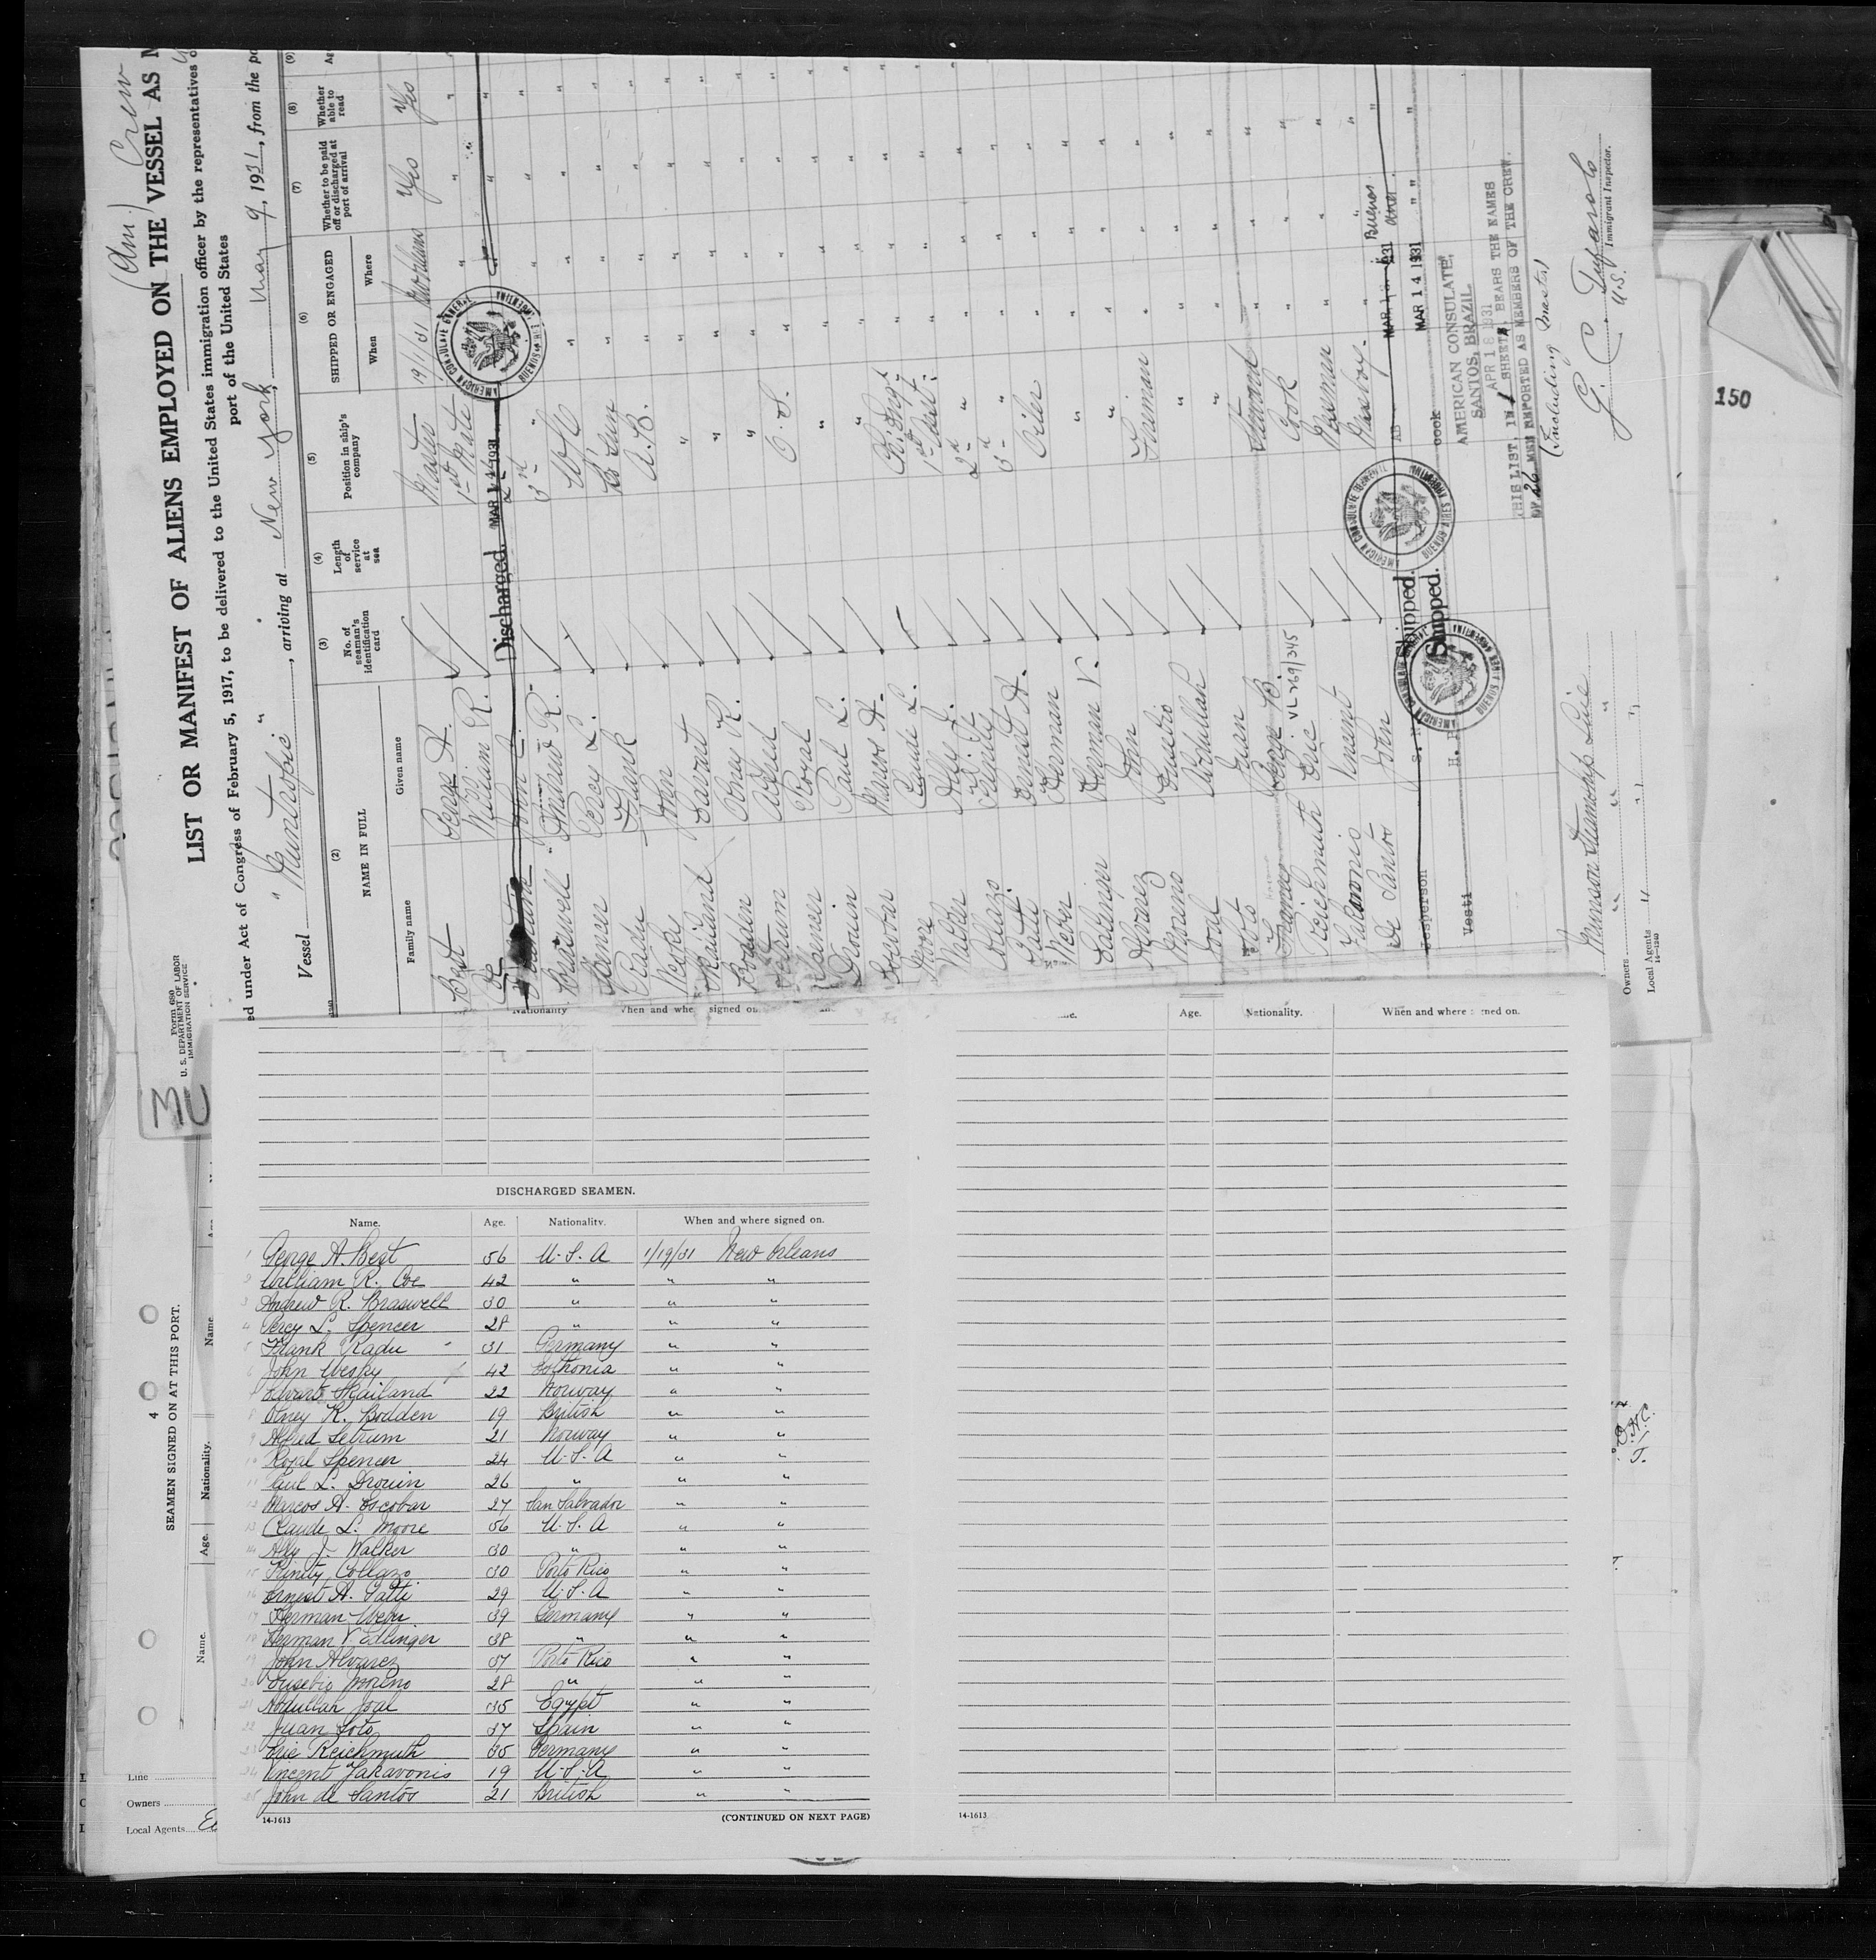 (Am.) Crew
LIST OR MANIFEST OF ALIENS EMPLOYED ON THE VESSEL AS M
ed under Act of Congress of February 5, 1917, to be delivered to the United States immigration officer by the representatives o
port of the United States
Vessel " Munatopic ", arriving at New York, May 9, 1931, from the po
Form 680
U. S. DEPARTMENT OF LABOR
IMMIGRATION SERVICE
(2) (3) (4) (5) (6) (7) (8) (9)
NAME IN FULL
Family name Given name
No. of seaman's identification card
Length of service at sea
Position in ship's company
SHIPPED OR ENGAGED
When Where
Whether to be paid off or discharged at port of arrival
Whether able to read
Ag
Best George A. Master 19/1/31 N Orleans Yes Yes
Coe William R. 1st Mate " " "
John Discharged. MAR 14 1931 2nd
Braswell Andrew R. 3rd " "
Spencer Percy L.
Radu Frank
Wesky John A.B.
Skailand Edvart "
Bodden Olney R. "
Setrum Alfred O.S.
Spencer Royal "
Drouin Paul L. "
Escobar Marcos A.
Moore Claude L. 1st Asst.
Walker Ally J. 2nd "
Collazo Trinity 3rd "
Patti Ernest A. Oiler
Weber Herman "
Edlinger Herman V. "
Alvarez John Fireman
Moreno Eusebio "
Joal Abdullah "
Soto Juan Steward
George B. Cook
Reichmuth Eric VL 269/345 Messman
Yakavonis Vincent Messboy
De Santos John
Jesperson S. Shipped. AB MAR 1931 Buenos Aires
Vesti H. P Shipped. cook MAR 14 1931 " "
AMERICAN CONSULATE GENERAL
BUENOS AIRES ARGENTINA
AMERICAN CONSULATE,
SANTOS, BRAZIL
APR 18 1931
THIS LIST, IN 1 SHEETS, BEARS THE NAMES
OF 26 MEN REPORTED AS MEMBERS OF THE CREW.
(Including Master)
G. C. Tufarolo
U.S. Immigrant Inspector.
Munson Steamship Line
Owners " " "
Local Agents " " "
14-1240
150
MU
Nationality When and whe signed on
Age. Nationality. When and where signed on.
DISCHARGED SEAMEN.
Name. Age. Nationality. When and where signed on.
1 George A. Best 56 U.S.A 1/19/31 New Orleans
2 William R. Coe 42 " " "
3 Andrew R. Braswell 30 " " "
4 Percy L. Spencer 28 " " "
5 Frank Radu 31 Germany " "
6 John Wesky 42 Esthonia " "
7 Edvart Skailand 22 Norway " "
8 Olney R. Bodden 19 British " "
9 Alfred Setrum 21 Norway " "
10 Royal Spencer 24 U.S.A " "
11 Paul L. Drouin 26 " " "
12 Marcos A. Escobar 27 San Salvador " "
13 Claude L. Moore 56 U.S.A " "
14 Ally J. Walker 30 " " "
15 Trinity Collazo 30 Porto Rico " "
16 Ernest A. Patti 29 U.S.A " "
17 Herman Weber 39 Germany " "
18 Herman V. Edlinger 38 " " "
19 John Alvarez 37 Porto Rico " "
20 Eusebio Moreno 28 " " "
21 Abdullah Joal 35 Egypt " "
22 Juan Soto 37 Spain " "
23 Eric Reichmuth 35 Germany " "
24 Vincent Yakavonis 19 U.S.A " "
25 John de Santos 21 British " "
14-1613 (CONTINUED ON NEXT PAGE) 14-1613
4
SEAMEN SIGNED ON AT THIS PORT.
Name. Age. Nationality. Name.
Line
Owners
Local Agents